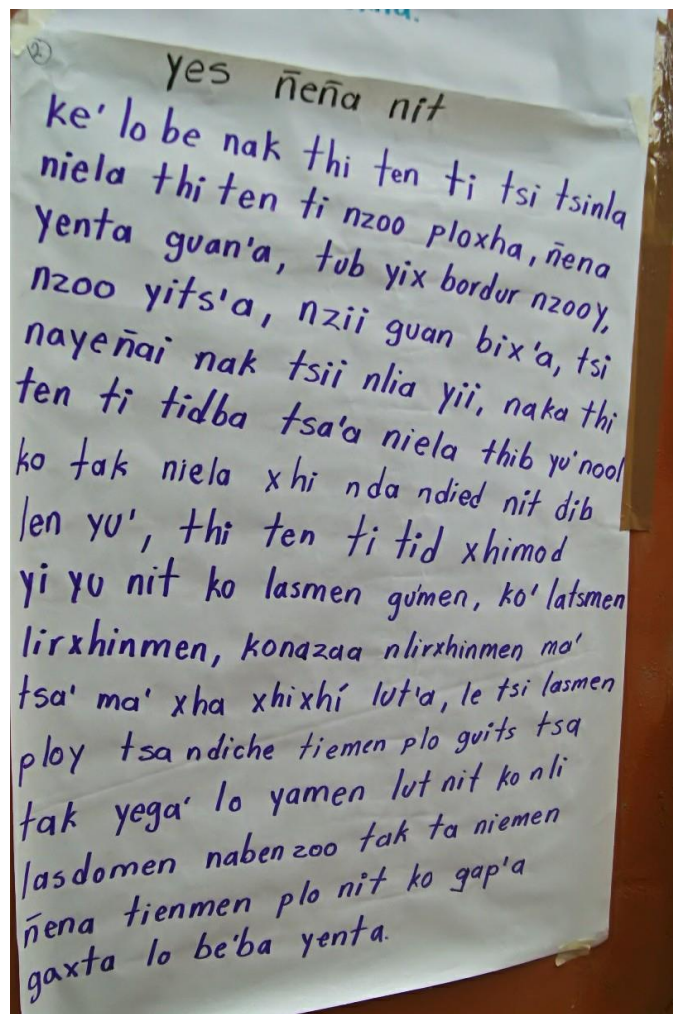 2
yes ñeña nit
ke' lo be nak thi ten ti tsi tsinla
niela thi ten ti nzoo ploxha, ñena
yenta guan'a, tub yix bordur nzooy,
nzoo yits'a, nzii guan bix'a, tsi
nayeñai nak tsii nlia yii, naka thi
ten ti tidba tsa'a niela thib yu'nool
ko tak niela xhi nda ndied nit dib
len yu', thi ten ti tid xhimod
yi yu nit ko lasmen gu'men, ko' latsmen
lirxhinmen, konazaa nlirxhinmen ma'
tsa' ma' xha xhixhí lut'a, le tsi lasmen
ploy tsa ndiche tiemen plo guits tsa
tak yega' lo yamen lut nit ko nli
lasdomen naben zoo tak ta niemen
ñena tienmen plo nit ko gap'a
gaxta lo be'ba yenta.